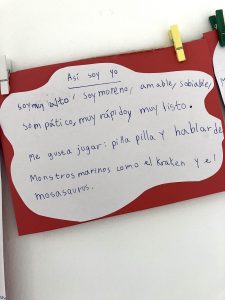 Así soy yo
soy muy alto, soy moreno, amable, sobiable,
sompático, muy rápidoy muy listo.
Me gusta jugar: pilla pilla y hablar de
Monstros marinos como el Kraken y el
mosasauros.